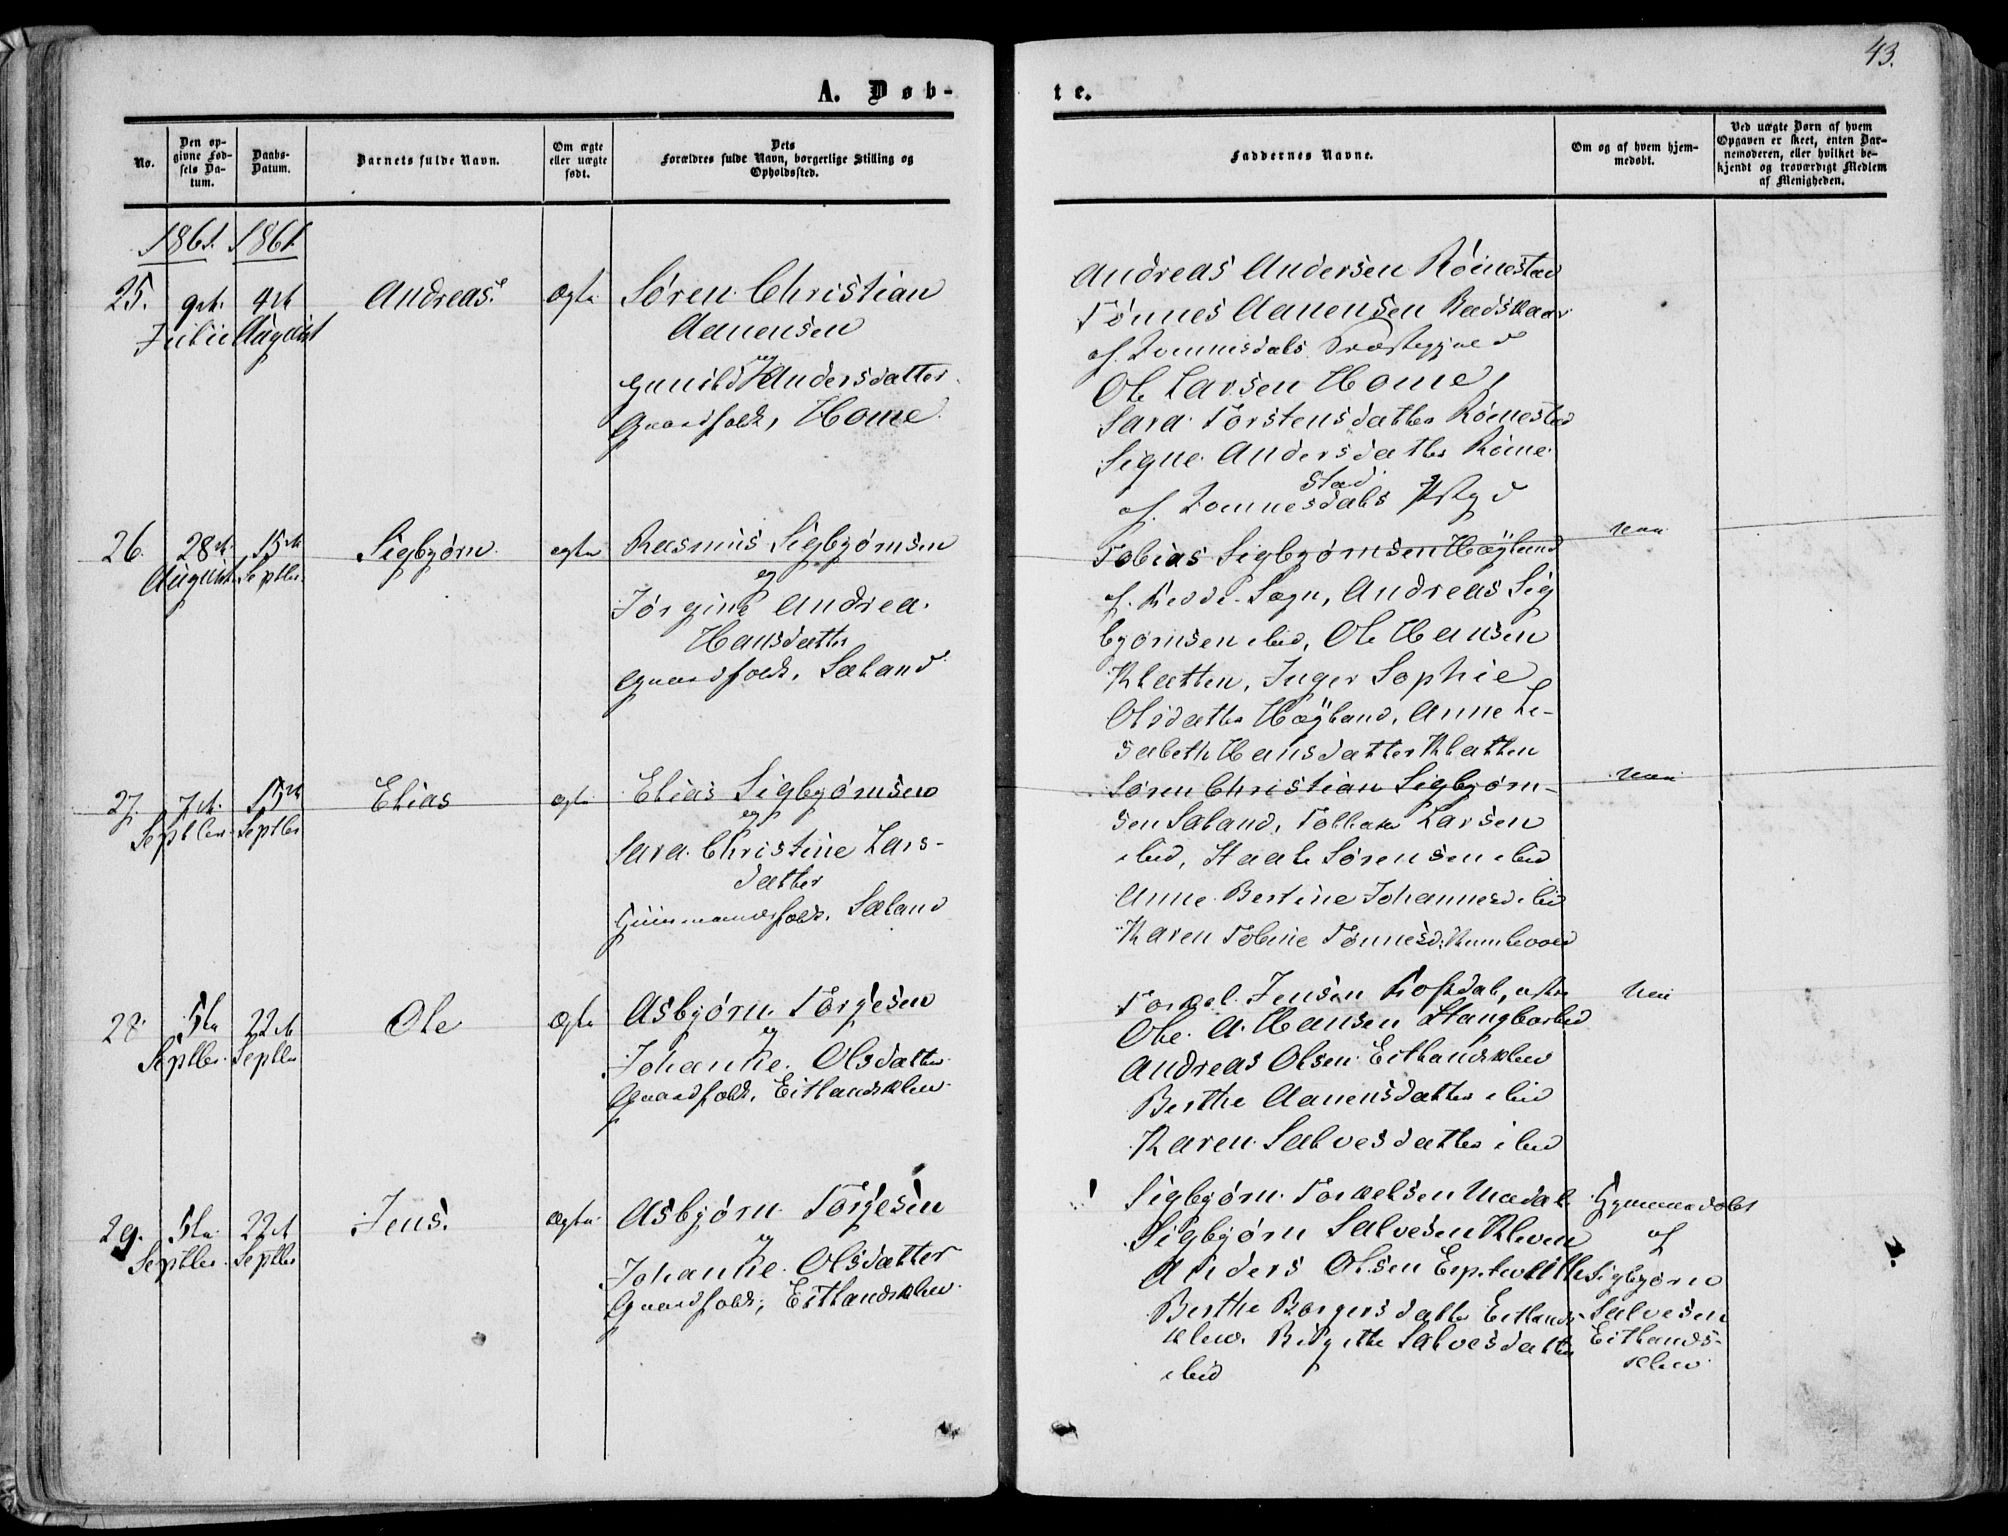 43.
A. Døb-
te.
No.
Den op-
givne Fød-
sels Da-
tum.
Daabs-
Datum.
Barnets fulde Navn.
Om ægte
eller uægte
født.
Dets
Forældres fulde Navn, borgerlige Stilling og
Opholdssted.
Faddernes Navne.
Om og af hvem hjem-
medøbt.
Ved uægte Børn af hvem
Opgaven er skeet, enten Bar-
nemoderen, eller hvilket be-
kjendt og troværdigt Medlem
af Menigheden.
1861. 1861.
25.
9de
Julii
4de
August
Andreas.
Ægte
Søren Christian
Aanensen
og
Gunild Andersdatter
Gaardfolk, Home.
Andreas Andersen Rømestad
Tønnes Aanensen
af Præstegjæld
Ole Larsen Home,
Sara Torstensdatter Rømestad
Signe Andersdatter Røme
stad
af
26.
28de
August
15de
Septbr.
Sigbjørn.
ægte
Rasmus Sigbjørnsen
og
Jørgine Andrea
Hansdatter
Gaardfolk, Sæland
Tobias Sigbjørnsen Høyland
af Sogn, Andreas Sig
bjørnsen ibid, Ole Hansen
Klatten, Inger Sophie
Olsdatter Høyland, Anne Li-
sabeth Hansdatter Klatten
nei
27.
7de
Septber
15de
Septbr
Elias
ægte
Elias Sigbjørnsen
og
Sara Christine Lars-
datter
Sæland
Søren Christian Sigbjørn-
sen Sæland, Larsen
ibid, Staale Sørensen ibid
Anne Bertine Johannesd. ibid
Karen Tobine Tønnesd.
nei
28.
5te
Septbr.
22de
Septbr
Ole
Ægte
Asbjørn Torgesen
og
Johanne Olsdatter
Gaardfolk, Eitlandsklev.
Torkel Jensen
Ole A. Hansen
Andreas Olsen Eitlandsklev
Berthe Aanensdatter ibid
Karen Salvesdatter ibid
Nei
29.
5te
Septbr.
22de
Septbr
Jens.
ægte
Asbjørn Torgesen
og
Johanne Olsdatter
Gaardfolk, Eitlandsklev.
Sigbjørn Torkelsen
Sigbjørn Salvesen Kleven
Anders Olsen
Berthe Borgersdatter Eitlands-
klev. Birgitte Salvesdatter
ibid
Hjemmedøbt
af
Sigbjørn
Salvesen
Eitlands-
klev.